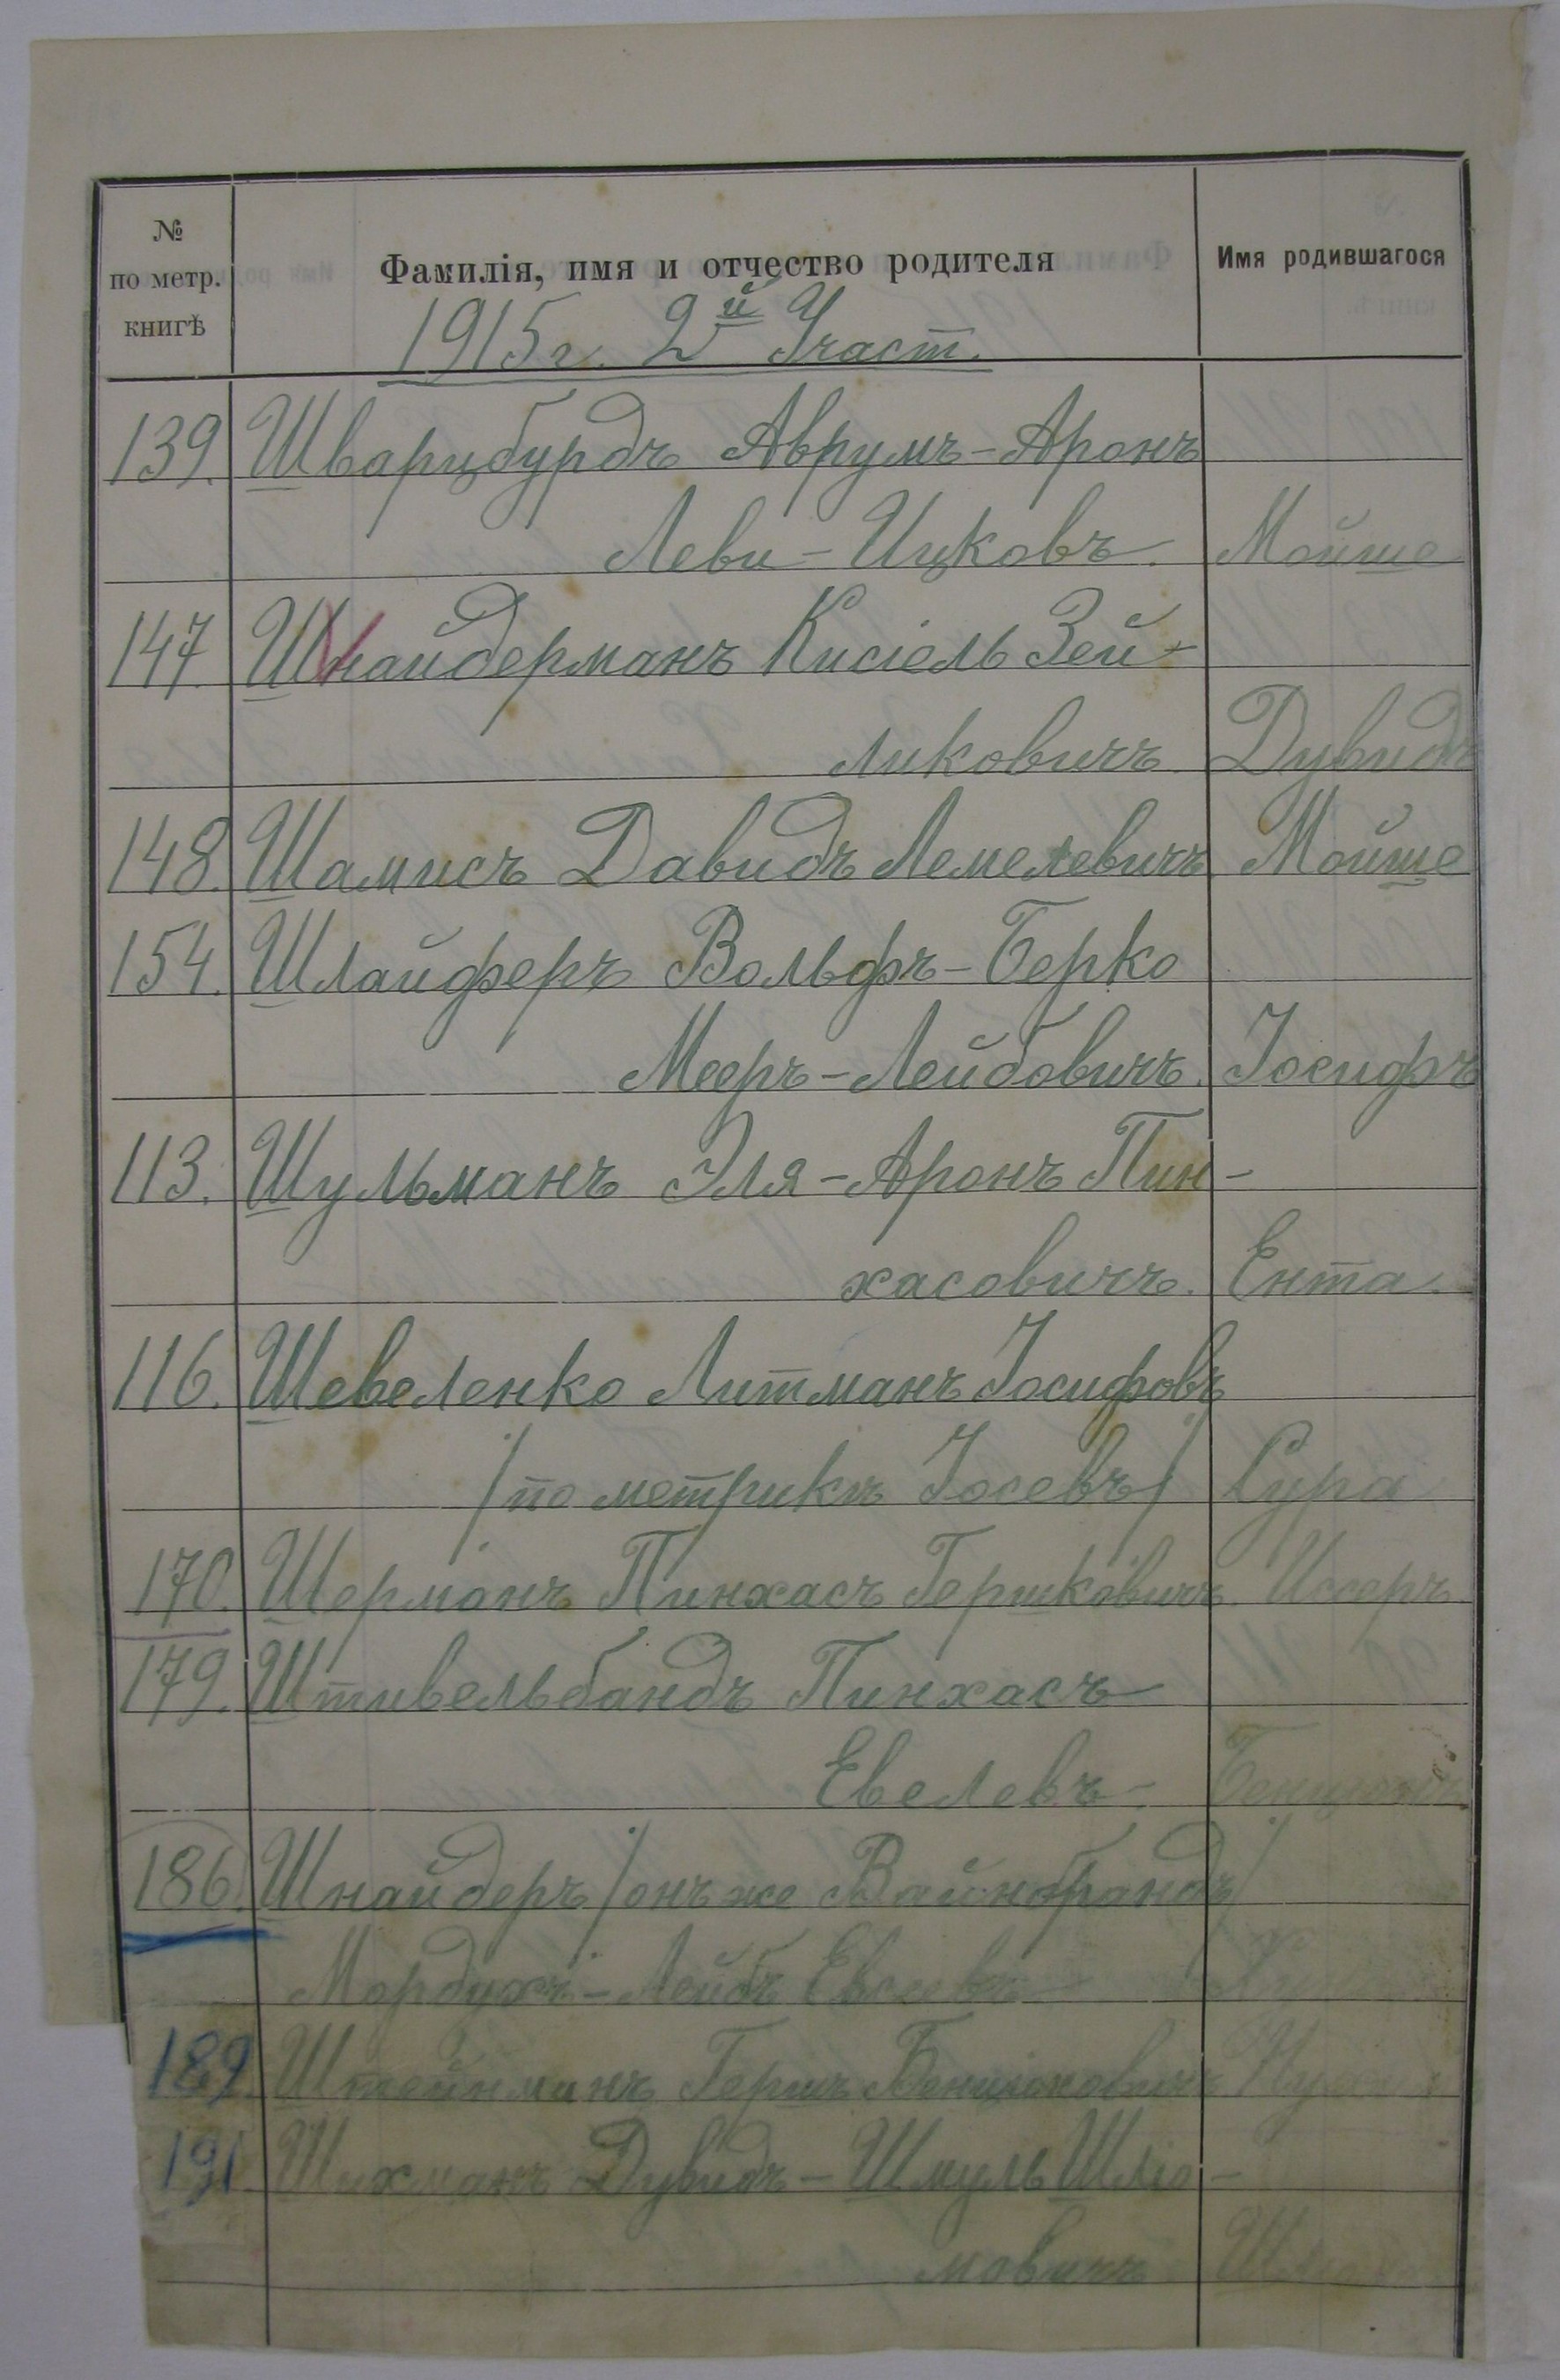 №
по метр.
книгѣ
Фамилія, имя и отчество родителя
Имя родившагося
1915 г. 2й Участ.
139. Шварцбурдъ Аврумъ-Аронъ
Леви-Ицковъ. Мойше
147. Шнайдерманъ Кисіель Зей-
ликовичъ Дувидъ
148. Шамисъ Давидъ Лемелевичъ Мойше
154. Шлайферъ Вольфъ-Берко
Мееръ-Лейбовичъ. Іосифъ
113. Шульманъ Эля-Аронъ Пин-
хасовичъ. Ента.
116. Шевеленко Литманъ Іосифовъ
/по метрикѣ Іосевъ/ Сура
170. Шерманъ Пинхасъ Гершковичъ. Иссеръ
179. Штивельбандъ Пинхасъ
Евелевъ- Бенціонъ
186. Шнайдеръ /онъ же Вайнбрандъ/
Мордухъ-Лейбъ Евсеевъ
189. Штейнманъ Гершъ Бенціоновичъ
191. Дувидъ-Шмуль Шліо-
мовичъ